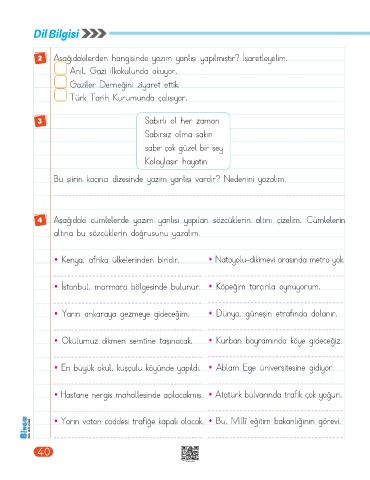 Dil Bilgisi
2 Aşağıdakilerden hangisinde yazım yanlışı yapılmıştır? İşaretleyelim.
Anıl, Gazi ilkokulunda okuyor.
Gaziler Derneğini ziyaret ettik.
Türk Tarih Kurumunda çalışıyor.
3
Sabırlı ol her zaman
Sabırsız olma sakın
sabır çok güzel bir şey
Kolaylaşır hayatın
Bu şiirin kaçıncı dizesinde yazım yanlışı vardır? Nedenini yazalım.
4 Aşağıdaki cümlelerde yazım yanlışı yapılan sözcüklerin altını çizelim. Cümlelerin
altına bu sözcüklerin doğrusunu yazalım.
• Kenya, afrika ülkelerinden biridir.
• Natoyolu-dikimevi arasında metro yok.
• İstanbul, marmara bölgesinde bulunur.
• Köpeğim tarçınla oynuyorum.
• Yarın ankaraya gezmeye gideceğim.
• Dünya, güneşin etrafında dolanır.
• Okulumuz dikmen semtine taşınacak.
• Kurban bayramında köye gideceğiz.
• En büyük okul, kuşçulu köyünde yapıldı.
• Ablam Ege üniversitesine gidiyor.
• Hastane nergis mahallesinde açılacakmış.
• Atatürk bulvarında trafik çok yoğun.
• Yarın vatan caddesi trafiğe kapalı olacak.
• Bu, Millî eğitim bakanlığının görevi.
BİNGO
40